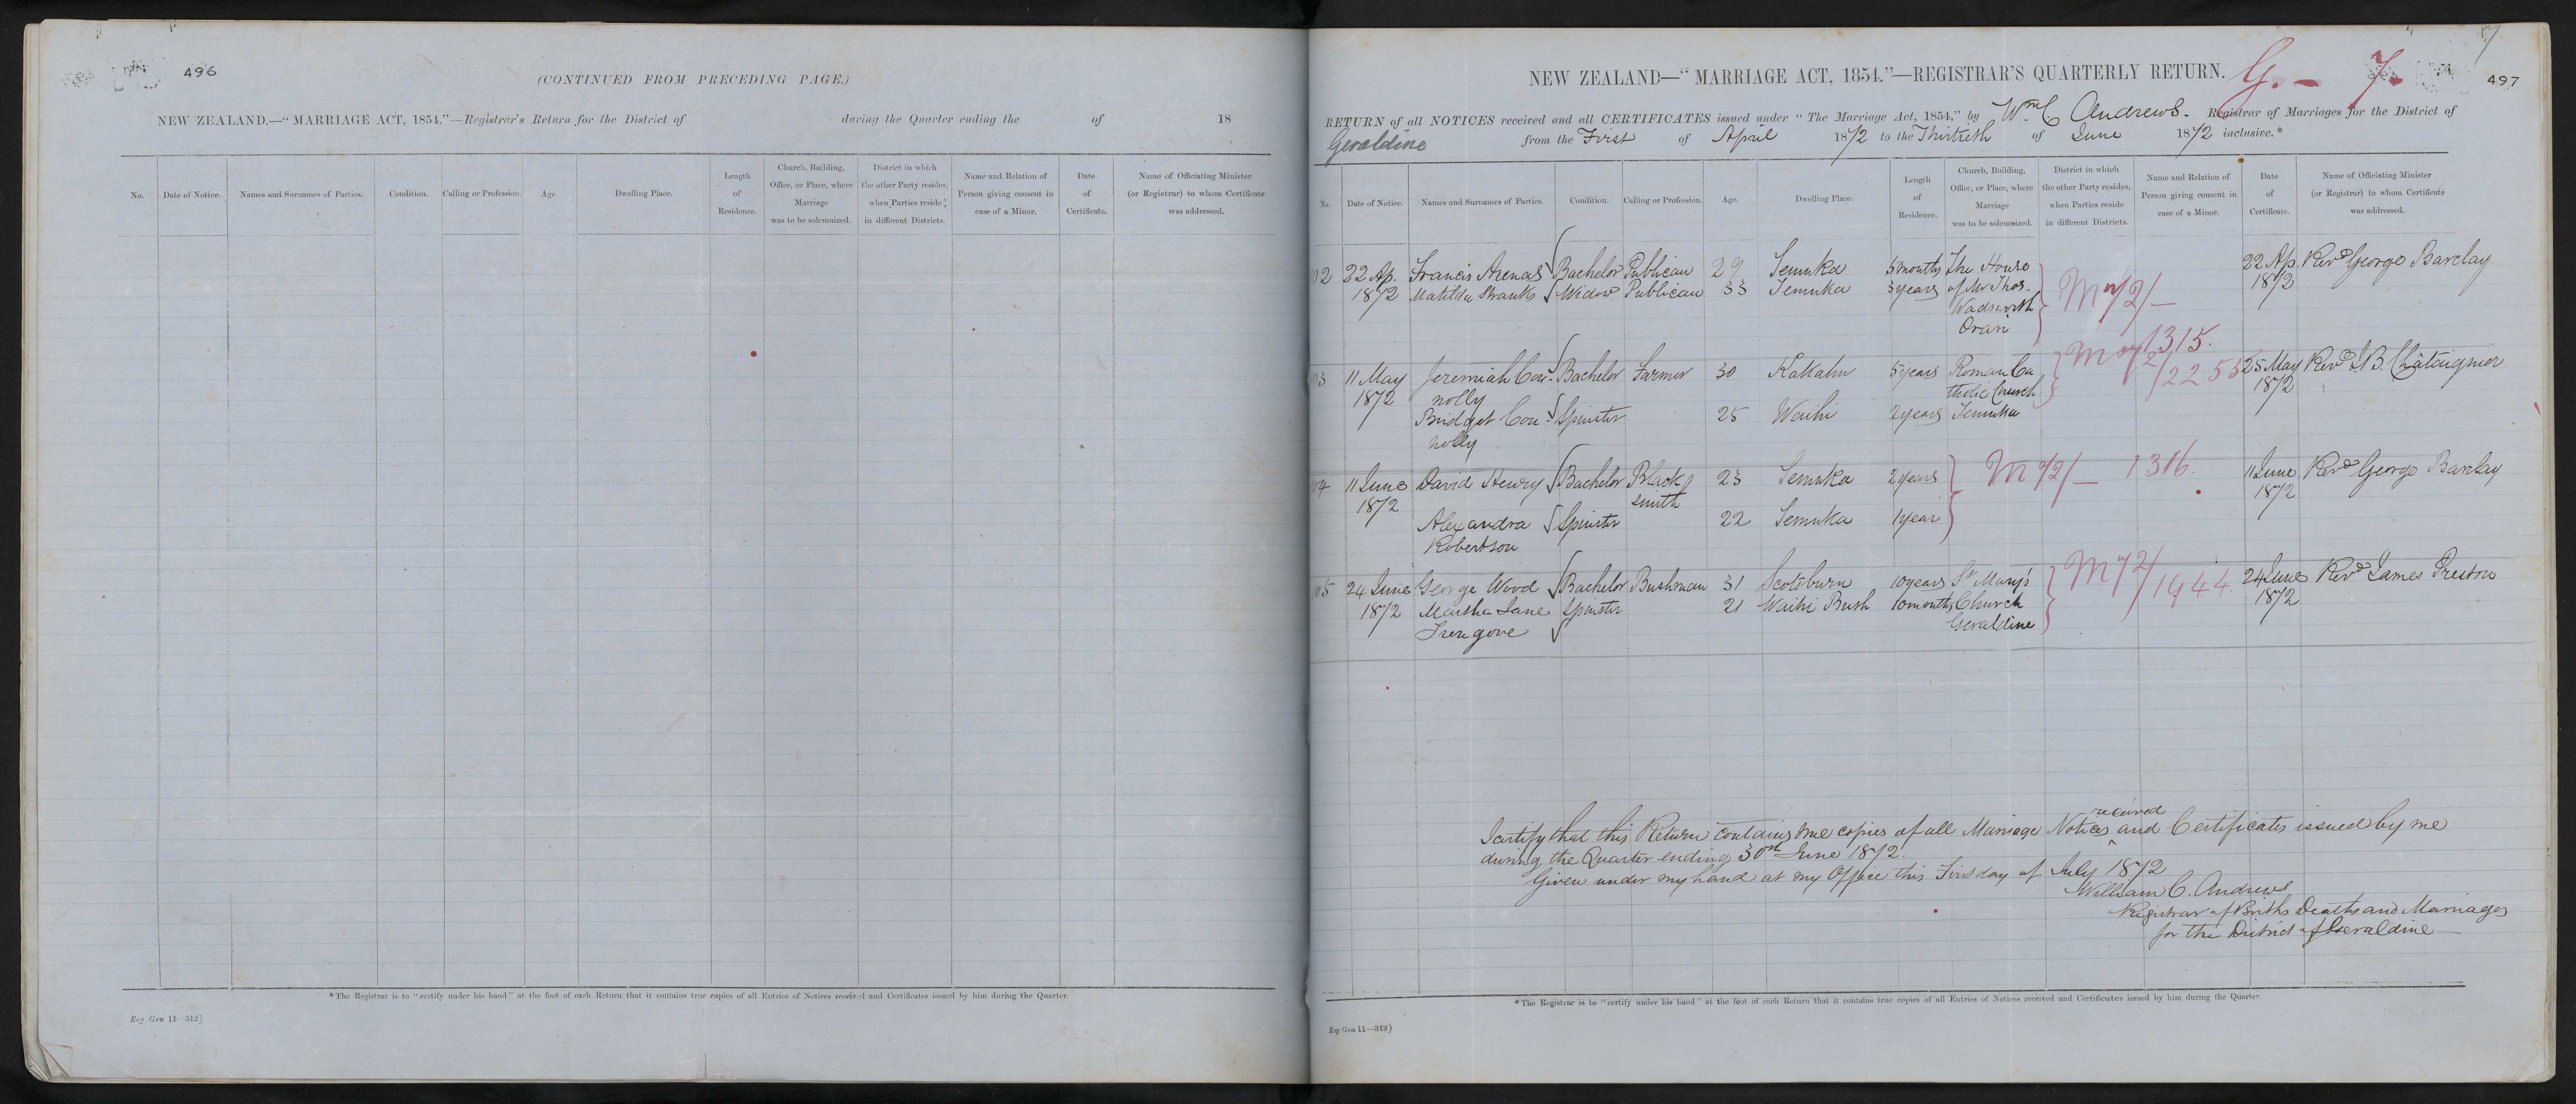 496
(CONTINUED FROM PRECEDING PAGE.)
NEW ZEALAND.—"MARRIAGE ACT, 1854."—Registrar's Return for the District of during the Quarter ending the of 18
No. Date of Notice. Names and Surnames of Parties. Condition. Calling or Profession. Age. Dwelling Place. Length of Residence. Church, Building, Office, or Place, where Marriage was to be solemnized. District in which the other Party resides, when Parties reside in different Districts. Name and Relation of Person giving consent in case of a Minor. Date of Certificate. Name of Officiating Minister (or Registrar) to whom Certificate was addressed.
*The Registrar is to "certify under his hand" at the foot of each Return that it contains true copies of all Entries of Notices received and Certificates issued by him during the Quarter.
Reg Gen 11—312]
497
NEW ZEALAND—"MARRIAGE ACT, 1854."—REGISTRAR'S QUARTERLY RETURN. G. - 7.
RETURN of all NOTICES received and all CERTIFICATES issued under "The Marriage Act, 1854," by Wm C Andrews. Registrar of Marriages for the District of
Geraldine from the First of April 1872 to the Thirtieth of June 1872 inclusive.*
No. Date of Notice. Names and Surnames of Parties. Condition. Calling or Profession. Age. Dwelling Place. Length of Residence. Church, Building, Office, or Place, where Marriage was to be solemnized. District in which the other Party resides, when Parties reside in different Districts. Name and Relation of Person giving consent in case of a Minor. Date of Certificate. Name of Officiating Minister (or Registrar) to whom Certificate was addressed.
102 22 Ap. Francis Arenas Bachelor Publican 29 Temuka 5 months The House 22 Ap. Revd George Barclay
1872 Matilda Shanks Widow Publican 33 Temuka 3 years of Mr Thos. M 72/— 1872
Wadsworth
Orari
1315.
103 11 May Jeremiah Con- Bachelor Farmer 30 Kakahu 5 years Roman Ca M 72/2255 25 May Revd J.B. Châtaignier
1872 nolly tholic Church 1872
Bridget Con- Spinster 25 Waihi 2 years Temuka
nolly
104 11 June David Henry Bachelor Black 23 Temuka 2 years M 72/— 1316. 11 June Revd George Barclay
1872 smith 1872
Alexandra Spinster 22 Temuka 1 year
Robertson
105 24 June George Wood Bachelor Bushman 31 Scotsburn 10 years St Mary's M 72/1944. 24 June Revd James Preston
1872 Martha Jane Spinster 21 Waihi Bush 10 months Church 1872
Trengove Geraldine
received
I certify that this Return contains true copies of all Marriage Notices and Certificates issued by me
during the Quarter ending 30th June 1872.
Given under my hand at my Office this First day of July 1872
William C. Andrews
Registrar of Births Deaths and Marriages
for the District of Geraldine
*The Registrar is to "certify under his hand" at the foot of each Return that it contains true copies of all Entries of Notices received and Certificates issued by him during the Quarter.
Reg Gen 11—312]